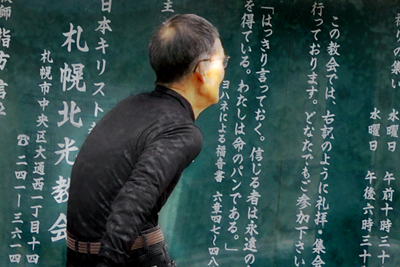 祈りの集い
水曜日 午前十時三十
水曜日 午後六時三十
この教会では、右記のように礼拝・集会
行っております。どなたでもご参加下さい
「はっきり言っておく。信じる者は永遠の
を得ている。わたしは命のパンである。」
ヨハネによる福音書 六章四七~四八
日本キリスト
札幌北光教会
札幌市中央区大通西一丁目十四
☎二四一-三六一四
師 指方信